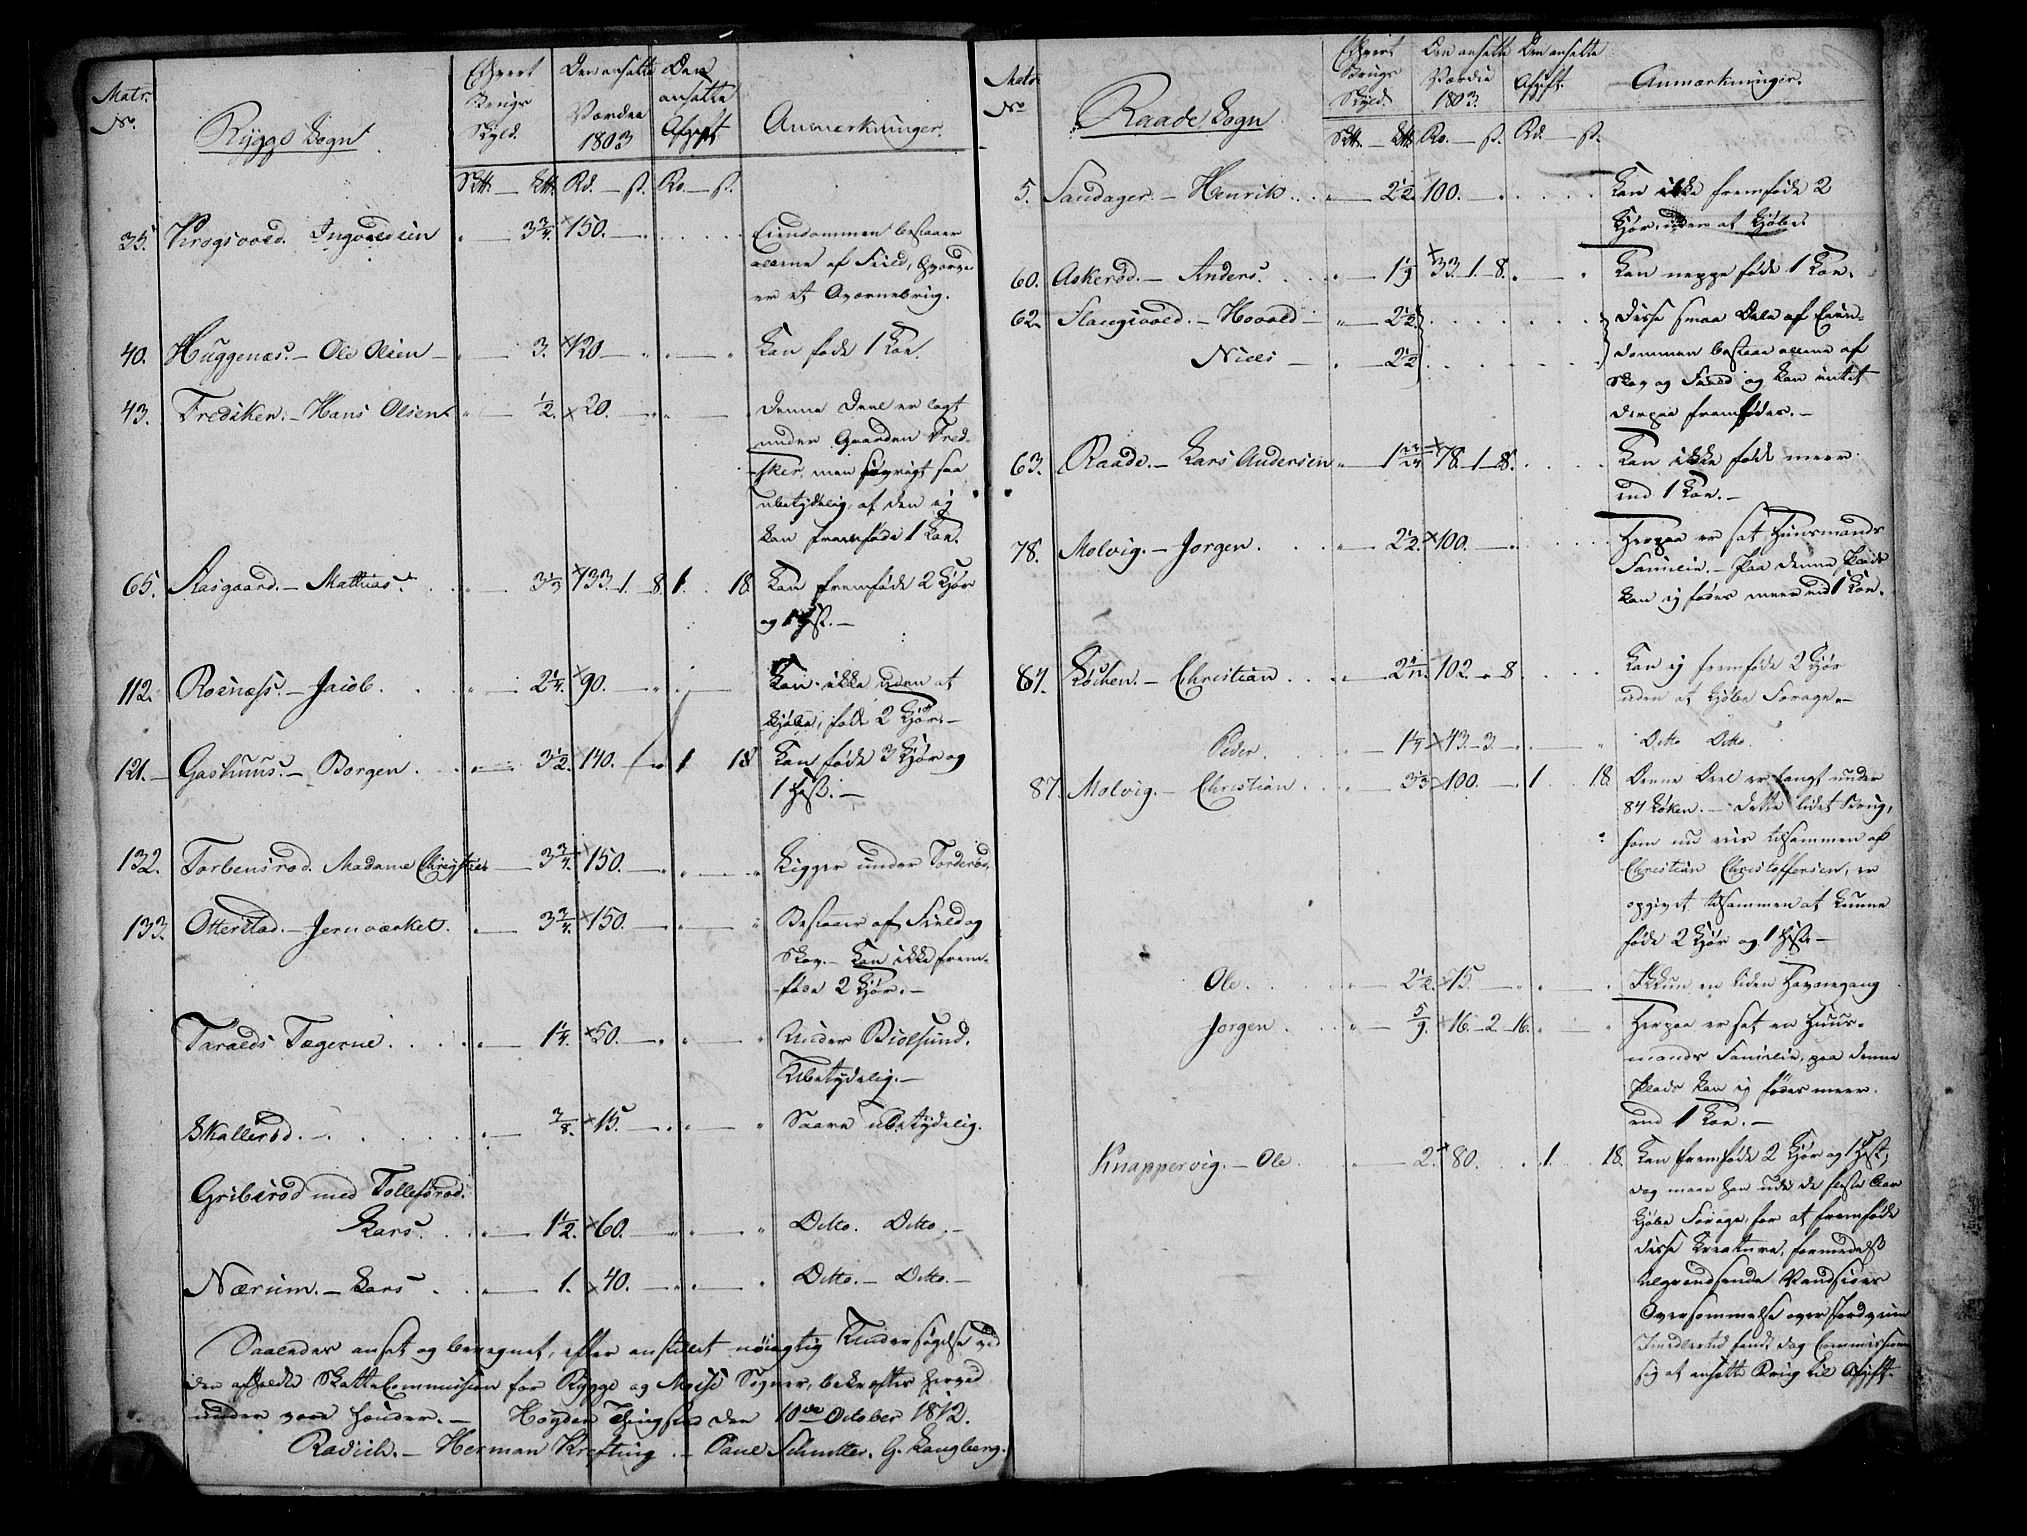 Matr. No.
Rygge Sogn
Ethvert Brugs Skyld.
Den ansatte Værdie 1803
Den ansatte Afgift
Anmærkninger.
Sktt. — Ltt. Rd. — ß. Rd. — ß.
35. Krogsvold. Ingvaldsen „ — 3 3/4. × 150. — „ Eiendommen bestaaer
allene af Field, hvorpaa
er et Qværnebrug.
40. Huggenæs. — Ole Olsen — „ — 3. × 120 — „ „ — „ Kan føde 1 Koe.
43. Fredsken. — Hans Olsen. „ — 1/2. × 20. — „ „ — Denne Deel er lagt
under Gaarden Fred-
sker, men forøvrigt saa
ubetydelig, at den ej
kan fremføde 1 Koe.
65. Aasgaard. — Mathias. „ — 3 1/3 × 133. 1. 8. 1. 18. Kan fremføde 2 Kjør
og 1 Hest. —
112. Rosnæss. — Jacob. „ — 2 1/4. × 90. — „ „ — Kan ikke uden at
kjøbe, føde 2 Kjør. —
121. — Gashuus. — Børgen. „ — 3 1/2. × 140. — „ 1 18 Kan føde 3 Kjør og
1 Hest. —
132. Torbensrød. Madame Chrystie „ — 3 3/4. × 150. — „ „ — „ Ligger under Torderød.
133. Otterstad. — Jernværket. „ — 3 3/4. × 150. — „ — „ Bestaaer af Field og
Skov. — Kan ikke frem-
føde 2 Kjør. —
Taralds Tægerne. „ — 1 1/4. × 50. — „ „ — „ Under Bielsund.
Ubetydelig. —
Skallerød. — „ — 3/8. × 15. — „ „ — „ Saare ubetydelig.
Gribsrød med Tollefsrød.
Lars. „ — 1 1/2. × 60. — „ „ — „ Ditto. Ditto. —
Nærum. — Lars „ — 1. × 40. — „ „ — „ Ditto. — Ditto. —
Saaledes ansat og beregnet, efter anstillet nøiagtig Undersøgelse ved
den afholdte SkatteCommission for Rygge og Moss Sogner, bekræftes herved
under vore Hænder. — Høyden Thingsted den 10de October 1812.
Radich. — Herman Krefting. — Paul Schmitler. G. Langberg.
Matr. No
Raade Sogn
Ethvert Brugs Skyld
Den ansatte Værdie 1803.
Den ansatte Afgift.
Anmærkninger.
Sktt. — Ltt. Rd. — ß. Rd. — ß.
5. Sandager. — Henrik. „ — 2 1/2 × 100. Kan ikke fremføde 2
Kjør, uden at kjøbe.
60. Askerød. — Anders. „ — 1 1/9 × 33. 1. 8. „ — „ Kan neppe føde 1 Koe.
62. Slangsvold. — Hovald — „ — 2 1/2 Disse smaa Dele af Eien-
Niels — „ — 2 1/2 dommen bestaae allene af
Skov og Field og kan intet
derpaa fremfødes. —
63. Raade. — Lars Andersen „ — 1 23/24 × 78. 1. 8. Kan ikke føde meer
end 1 Koe. —
78. Molvig. — Jørgen. „ — 2 1/2. × 100. — „ Herpaa er sat Huusmands
Familie. — Paa denne Plads
kan ej fødes meer end 1 Koe.
84. Løchen. — Christian „ — 2 × 102. „ 8 Kan ej fremføde 2 Kjør
uden at kjøbe Forage. —
Peder. „ — 1 1/4 × 43. 3. — „ Ditto Ditto.
87. Molvig. — Christian „ — 3 1/3 × 100. — „ 1 18. Denne Deel er langt under
84 Løken. — Dette lidet Brug,
som nu eies tilsammen af
Christian Christoffersen, er
opgivet tilsammen at kunne
føde 2 Kjør og 1 Hest —
Ole. „ — 2 1/2. × 15. — „ „ — „ Ikkun en liden Havnegang
Jørgen. „ — 5/9. × 16. 2. 16. „ — „ Herpaa er sat en Huus-
mands Familie, paa denne
Plads kan ej fødes meer
end 1 Koe. —
Knappervig. — Ole. „ — 2. × 80. „ 1. 18. Kan fremføde 2 Kjør og 1 Hest,
dog maae han udi de fleste Aar
kjøbe Forage, for at fremføde
disse Kreature, formedelst
tilgrændsende Vandsiøes
Oversvømmelse over Jordveien
Imidlertid fandt dog Commissionen
sig at ansætte Brug til Afgift.